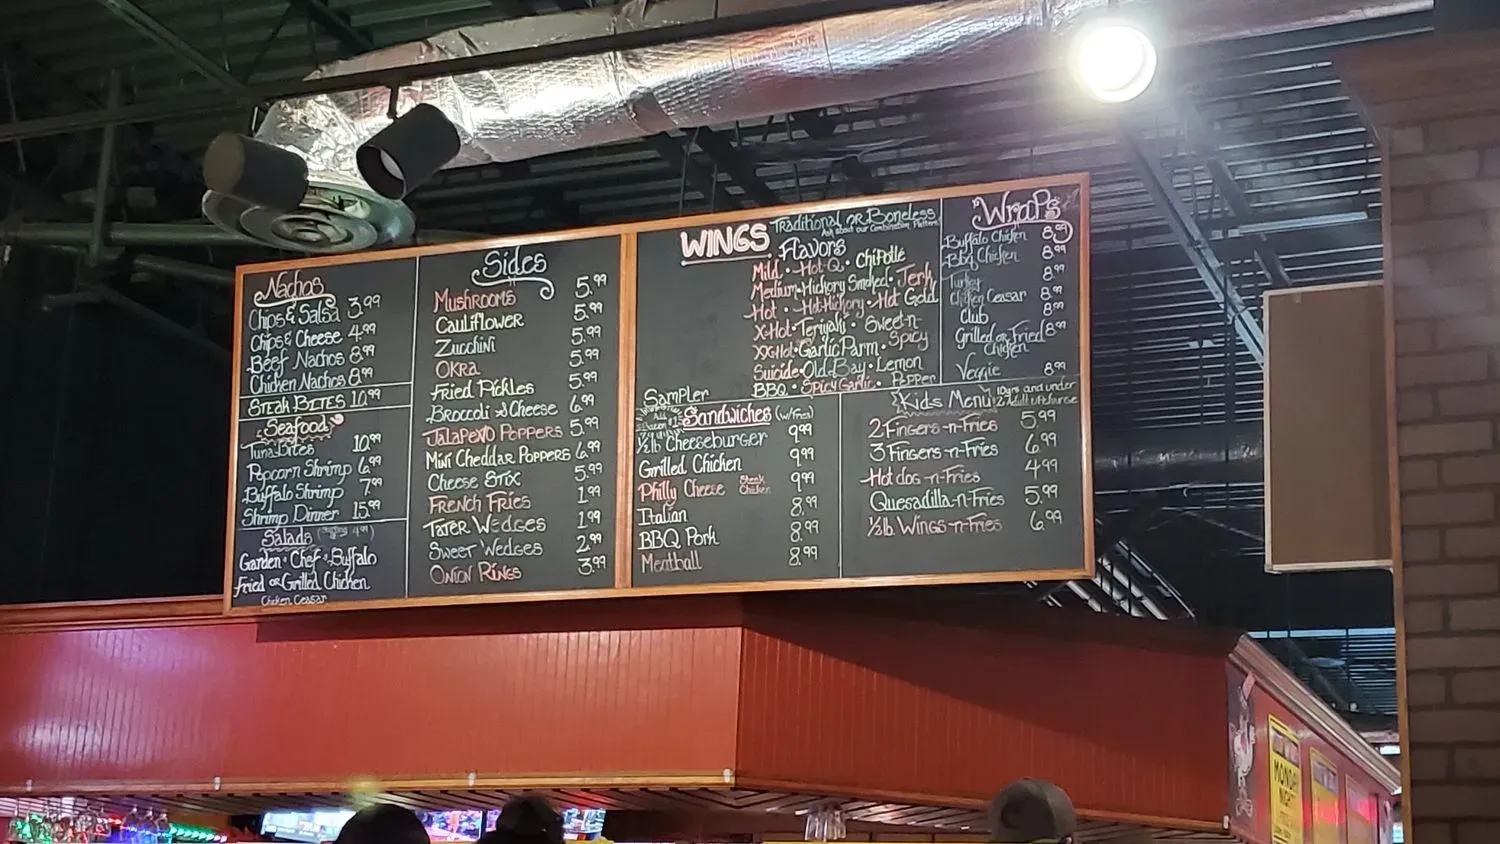 Nachos
Chips & Salsa 3.99
Chips & Cheese 4.99
Beef Nachos 8.99
Chicken Nachos 8.99
Steak Bites 10.99
Seafood
Tuna Bites 10.99
Popcorn Shrimp 6.99
Buffalo Shrimp 7.99
Shrimp Dinner 15.99
Salads
Garden • Chef • Buffalo
Fried or Grilled Chicken
Chicken Ceasar
Sides
Mushrooms 5.99
Cauliflower 5.99
Zucchini 5.99
Okra 5.99
Fried Pickles 5.99
Broccoli & Cheese 6.99
Jalapeno Poppers 5.99
Mini Cheddar Poppers 6.99
Cheese Stix 5.99
French Fries 1.99
Tater Wedges 1.99
Sweet Wedges 2.99
Onion Rings 3.99
WINGS Traditional or Boneless
Ask about our Combination Platters
Flavors
Mild • Hot-Q • Chipotle
Medium • Hickory Smoked • Jerk
Hot • Hot-Hickory • Hot Gold
X-Hot • Teriyaki • Sweet-n-Spicy
XX-Hot • Garlic Parm •
Suicide • Old-Bay • Lemon Pepper
BBQ • Spicy Garlic •
Sampler
Sandwiches (w/fries)
1/2 lb Cheeseburger 9.99
Grilled Chicken 9.99
Philly Cheese Steak Chicken 9.99
Italian 8.99
BBQ Pork 8.99
Meatball 8.99
Wraps
Buffalo Chicken 8.99
Bbq Chicken 8.99
Turkey 8.99
Chicken Ceasar 8.99
Club 8.99
Grilled or Fried Chicken 8.99
Veggie 8.99
Kids Menu 10yrs and under
2 Adult upcharge
2 Fingers-n-Fries 5.99
3 Fingers-n-Fries 6.99
Hot dog-n-Fries 4.99
Quesadilla-n-Fries 5.99
1/2 lb. Wings-n-Fries 6.99
MONDAY